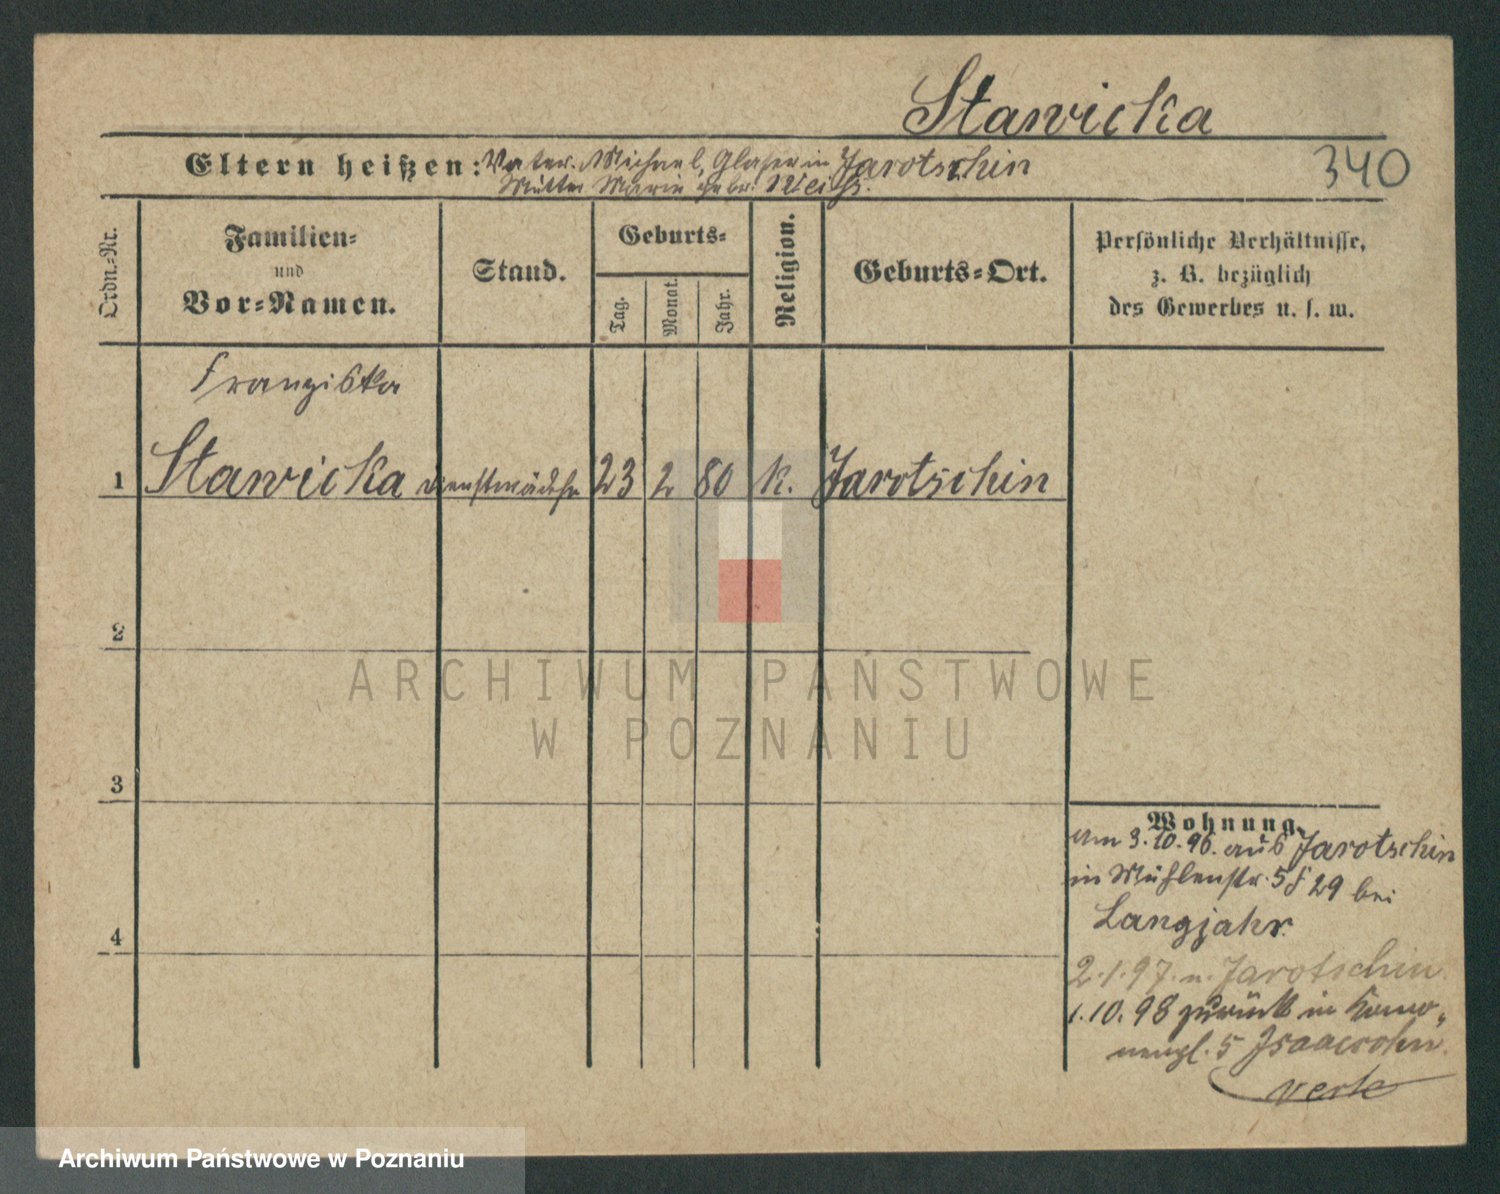 Stawicka
Eltern heißen: Vater Michael, Glaser in Jarotschin
Mutter Marie geb. Weiß.
340
Ordn.-Nr.
Familien-
und
Vor-Namen.
Stand.
Geburts-
Tag.
Monat.
Jahr.
Religion.
Geburts-Ort.
Persönliche Verhältnisse,
z. B. bezüglich
des Gewerbes u. s. w.
Franziska
1 Stawicka Dienstmädchen 23 2 80 k. Jarotschin
2
3
4
Wohnung.
am 3.10.96. aus Jarotschin
in Mühlenstr. 29 bei
Langjahr.
2.1.97. n. Jarotschin.
1.10.98 zurück in
5 Isaacsohn.
ARCHIWUM PAŃSTWOWE
W POZNANIU
Archiwum Państwowe w Poznaniu